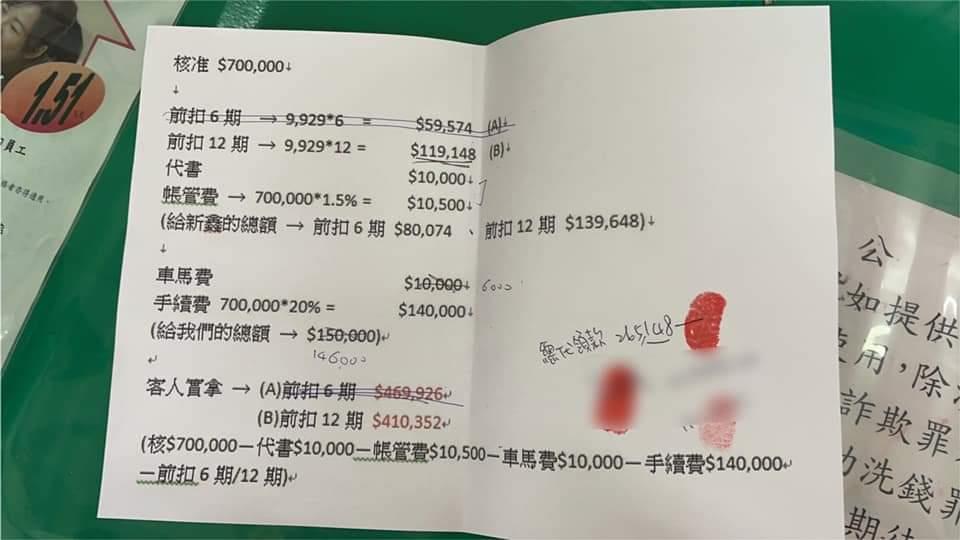 核准 $700,000↓
↓
前扣 6 期 → 9,929*6 = $59,574 (A)↓
前扣 12 期 → 9,929*12 = $119,148 (B)↓
代書 $10,000↓
帳管費 → 700,000*1.5% = $10,500↓
(給新鑫的總額 → 前扣 6 期 $80,074 、 前扣 12 期 $139,648)↓
↓
車馬費 $10,000↓ 6000
手續費 700,000*20% = $140,000↓
(給我們的總額 → $150,000)↵
146,000
↵
客人實拿 → (A)前扣 6 期 $469,926↵
(B)前扣 12 期 $410,352↵
(核$700,000－代書$10,000－帳管費$10,500－車馬費$10,000－手續費$140,000
－前扣 6 期/12 期)↵
265,148
1.51
員工
公
如提供
使用，除
詐欺罪
功洗錢罪
期徒